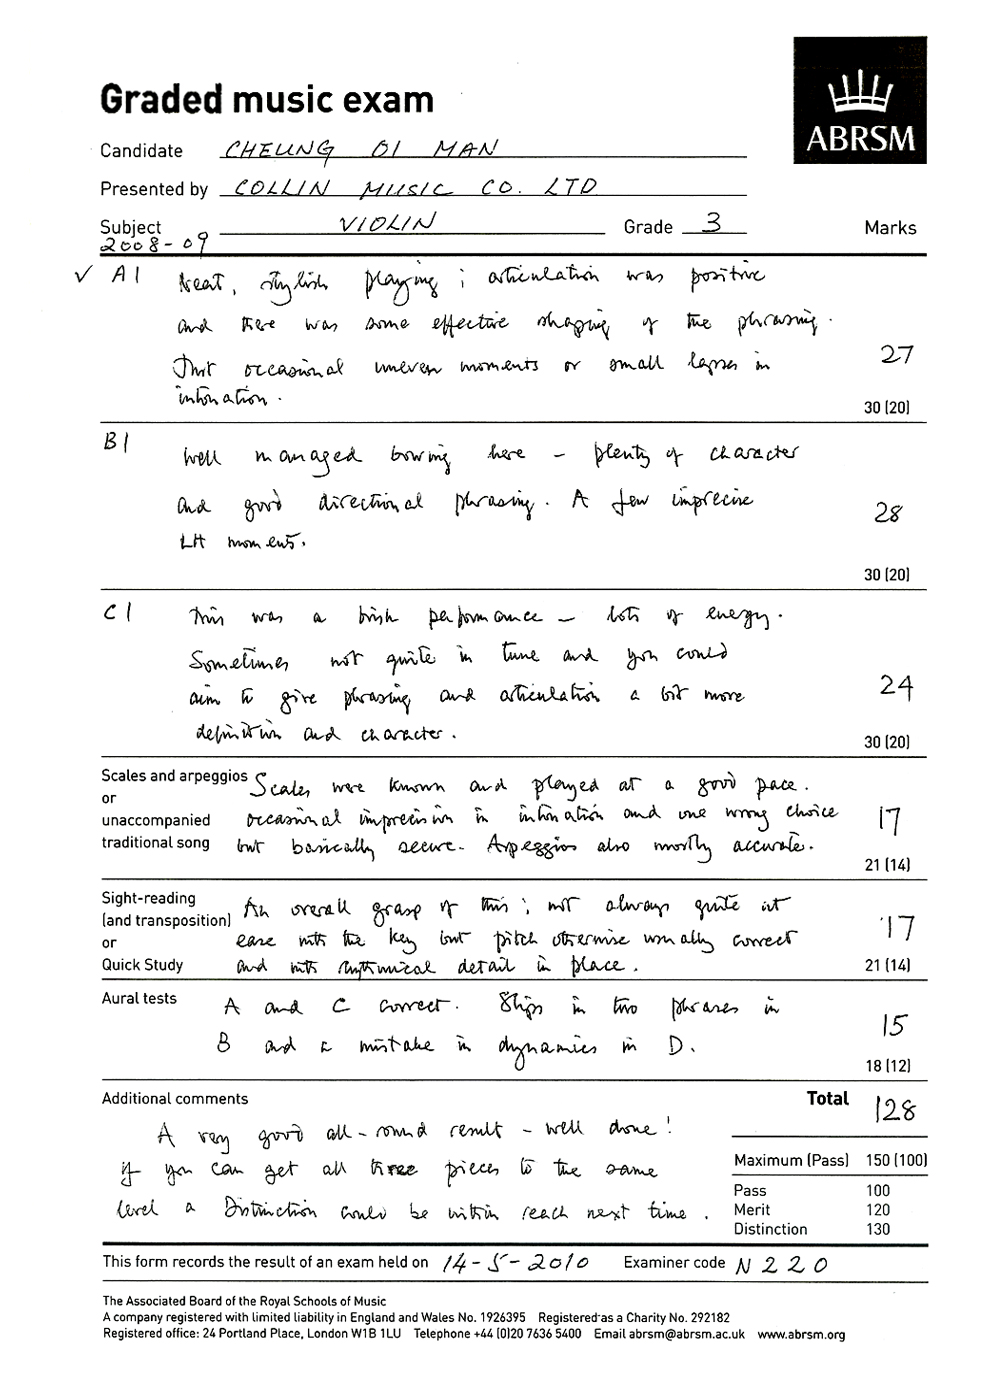 Graded music exam
ABRSM
Candidate CHEUNG OI MAN
Presented by COLLIN MUSIC CO. LTD
Subject VIOLIN Grade 3 Marks
2008-09
✓ A1 Neat, stylish playing; articulation was positive
and there was some effective shaping of the phrasing.
Just occasional uneven moments or small lapses in
intonation.
27
30 (20)
B1 Well managed bowing here – plenty of character
and good directional phrasing. A few imprecise
LH moments.
28
30 (20)
C1 This was a brisk performance – lots of energy.
Sometimes not quite in tune and you could
aim to give phrasing and articulation a bit more
definition and character.
24
30 (20)
Scales and arpeggios
or
unaccompanied
traditional song
Scales were known and played at a good pace.
occasional imprecision in intonation and one wrong choice
but basically secure. Arpeggios also mostly accurate.
17
21 (14)
Sight-reading
(and transposition)
or
Quick Study
An overall grasp of this; not always quite at
ease with the key but pitch otherwise usually correct
and with rhythmical detail in place.
17
21 (14)
Aural tests
A and C correct. Slips in two phrases in
B and a mistake in dynamics in D.
15
18 (12)
Additional comments
A very good all-round result – well done!
if you can get all three pieces to the same
level a Distinction could be within reach next time.
Total 128
Maximum (Pass) 150 (100)
Pass 100
Merit 120
Distinction 130
This form records the result of an exam held on 14-5-2010 Examiner code N220
The Associated Board of the Royal Schools of Music
A company registered with limited liability in England and Wales No. 1926395 Registered as a Charity No. 292182
Registered office: 24 Portland Place, London W1B 1LU Telephone +44 (0)20 7636 5400 Email abrsm@abrsm.ac.uk www.abrsm.org